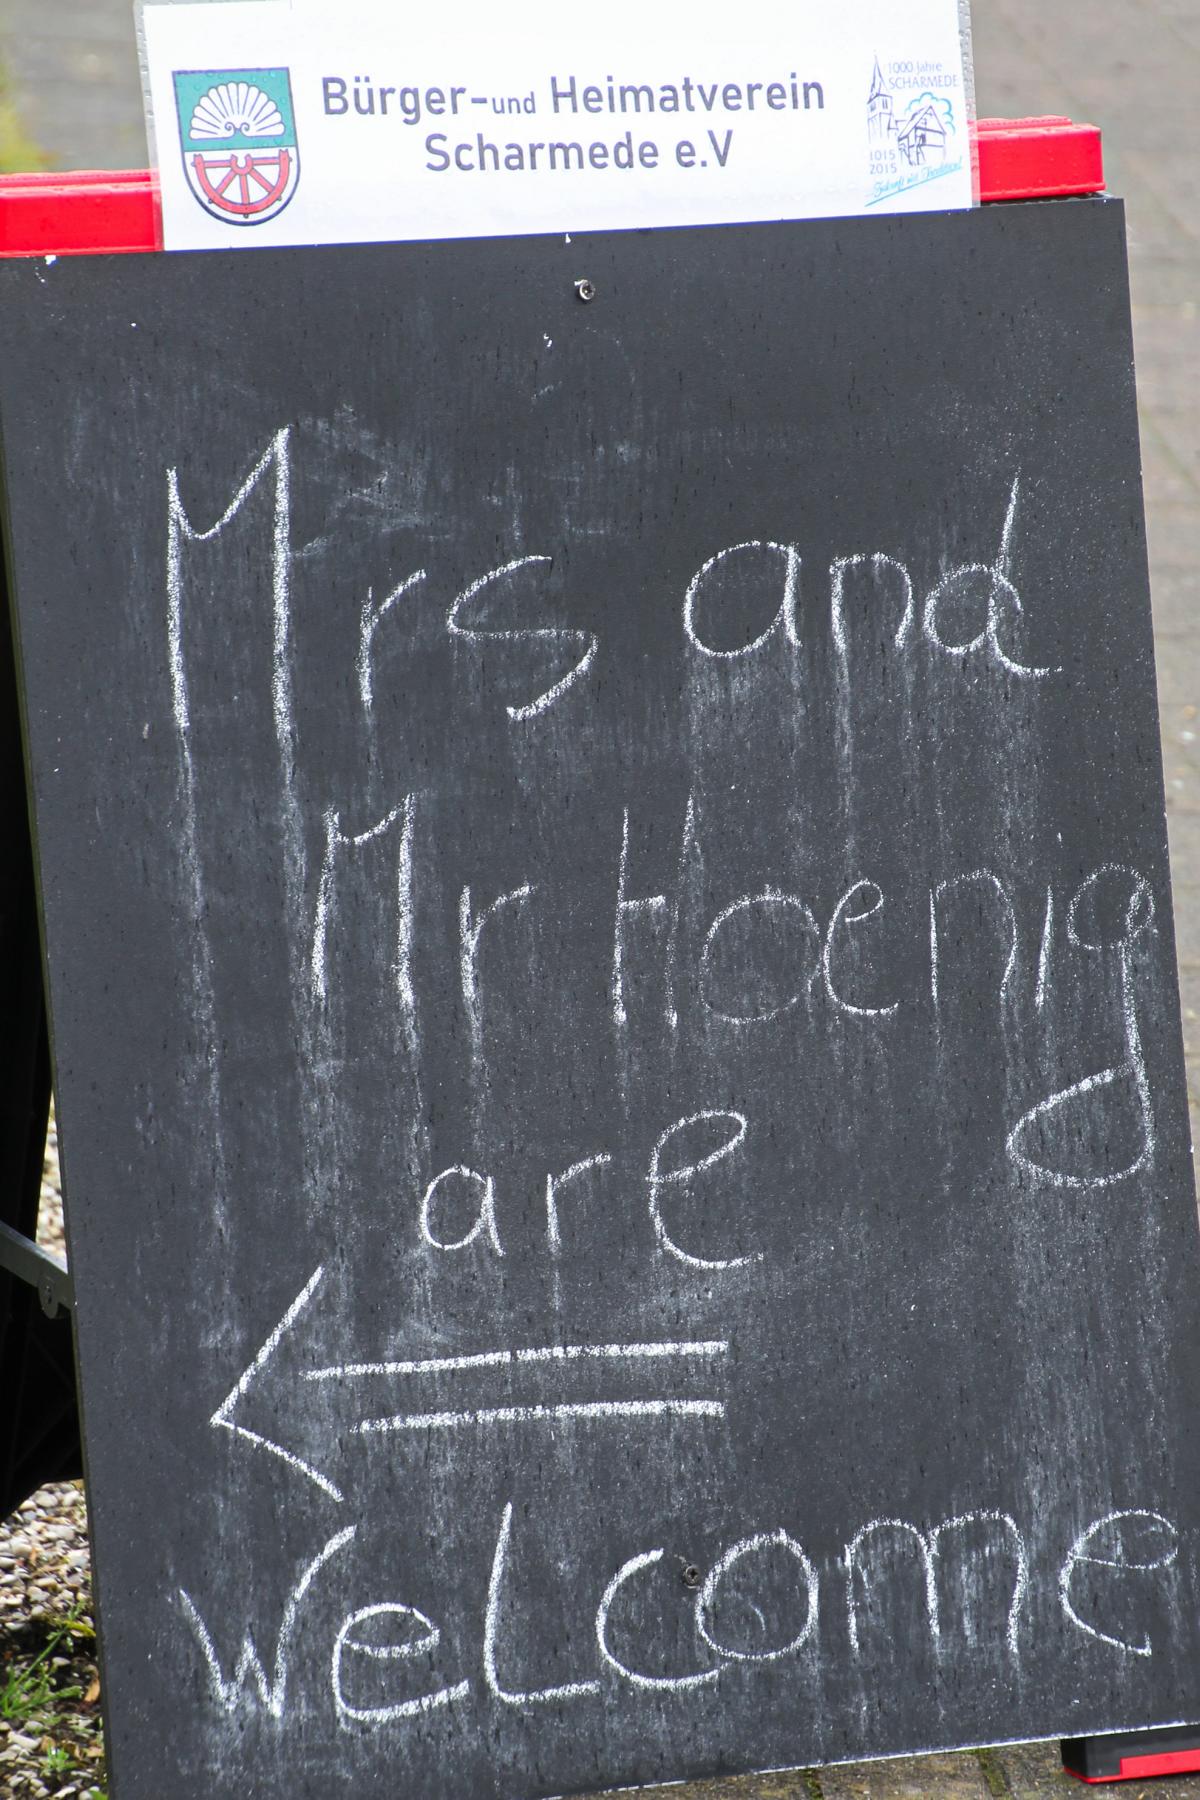 Bürger-und Heimatverein
Scharmede e.V
1000 Jahre
SCHARMEDE
1015
2015
Zukunft mit Tradition!
Mrs and
Mr Hoenig
are
Welcome